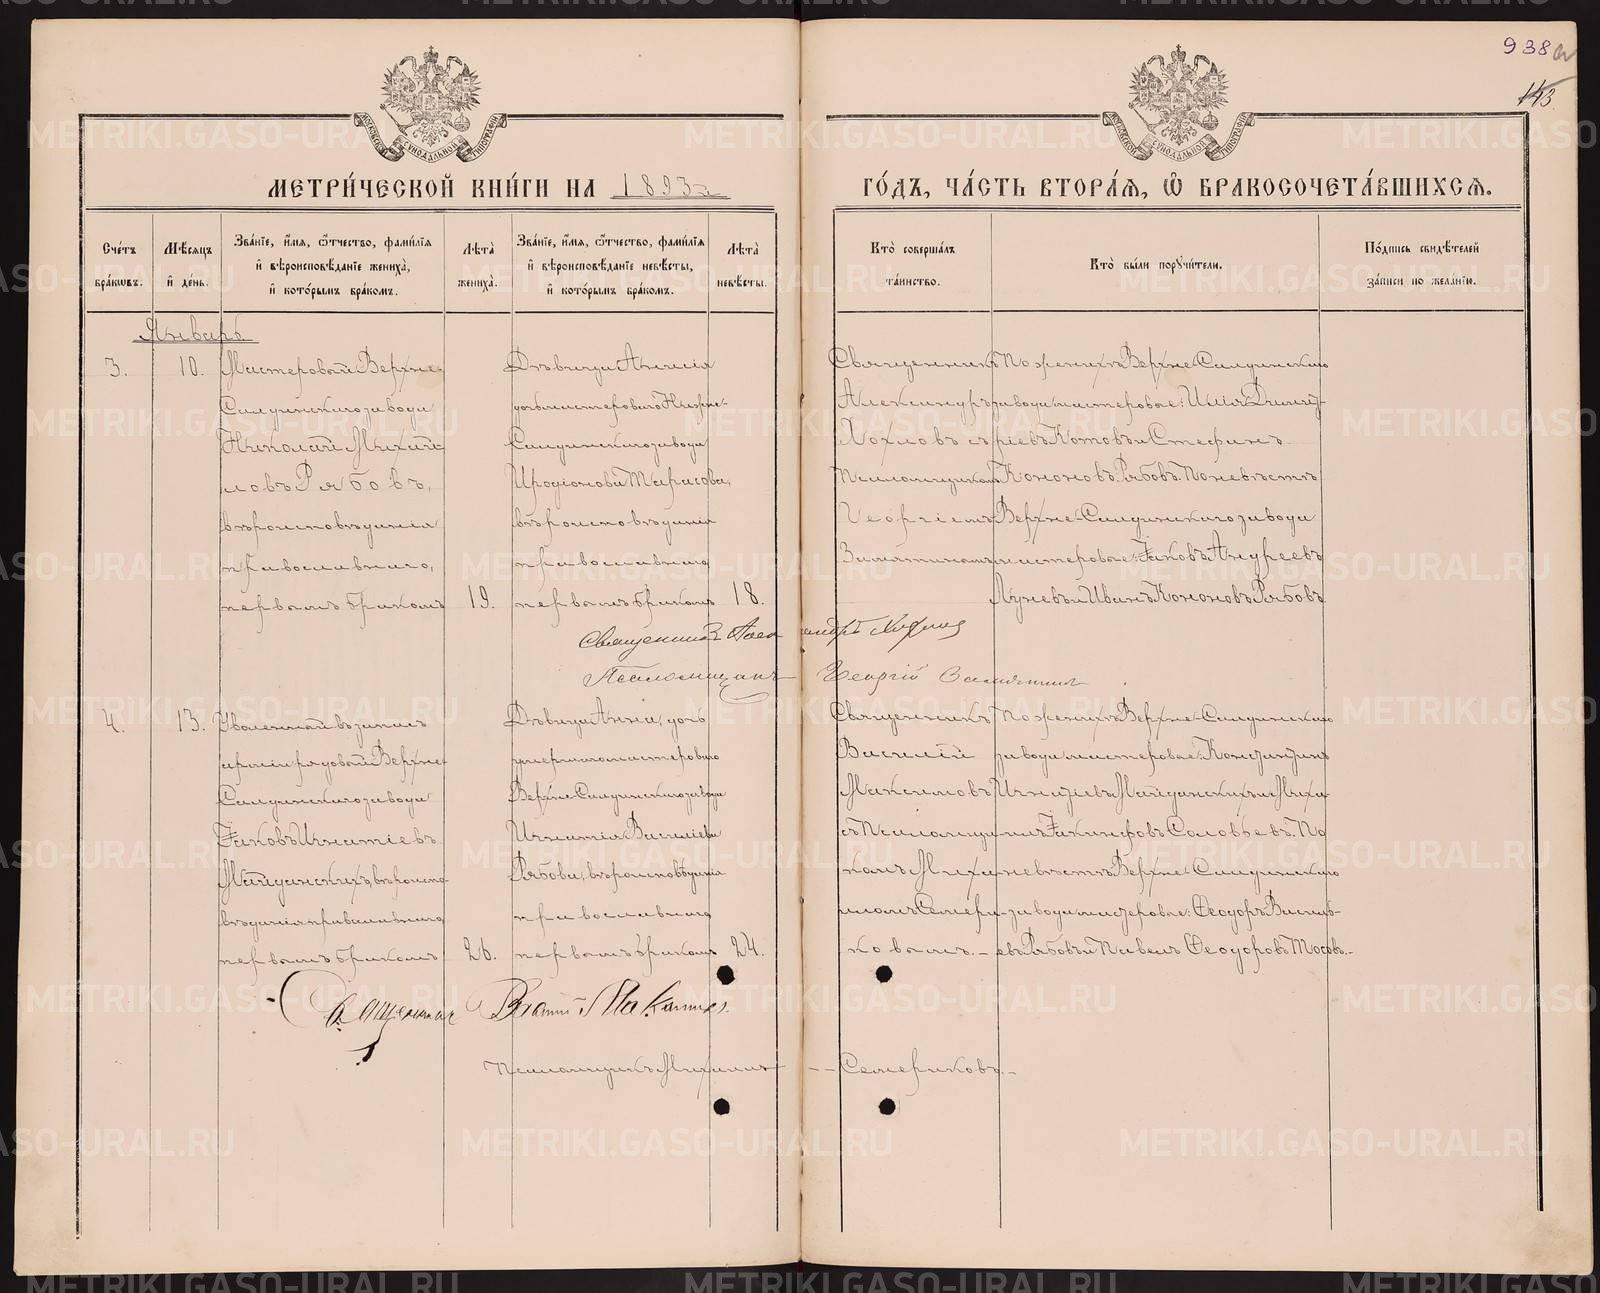 938
113.
МОСКОВСКОЙ СУНОДАЛЬНОЙ ТИПОГРАФІИ
МОСКОВСКОЙ СУНОДАЛЬНОЙ ТИПОГРАФІИ
МЕТРИ́ЧЕСКОЙ КНИ́ГИ НА 1893й
ГО́ДЪ, ЧА́СТЬ ВТОРА́Я, Ѡ҆ БРАКОСОЧЕТА́ВШИХСѦ.
Сче́тъ бра́кωвъ.
Мѣ́сѧцъ и҆ де́нь.
Зва́нїе, и҆́мѧ, ѻ҆́тчество, фами́лїѧ и҆ вѣроисповѣ́данїе жениха̀, и҆ кото́рымъ бра́комъ.
Лѣ́та̀ жениха̀.
Зва́нїе, и҆́мѧ, ѻ҆́тчество, фами́лїѧ и҆ вѣроисповѣ́данїе невѣ́сты, и҆ кото́рымъ бра́комъ.
Лѣ́та̀ невѣ́сты.
Кто̀ соверша́лъ та́инство.
Кто̀ бы́ли поручи́тели.
По́дпись свидѣ́телей за́писи по жела́нїю.
Январь
3.
10.
Мастеровый Верхне-
Салдинскаго завода
Николай Михай-
ловъ Рябовъ,
вѣроисповѣданія
православнаго,
первымъ бракомъ
19.
Дѣвица Анисія
дочь мастероваго Нижне-
Салдинскаго завода
Иродіонова Тарасова,
вѣроисповѣданія
православнаго
первымъ бракомъ
18.
Священникъ
Александръ
Хохловъ съ
Псаломщикомъ
Георгіемъ
Замятинымъ
По женихѣ Верхне-Салдинскаго
завода мастеровые: Илія Димит-
ріевъ Котовъ и Стефанъ
Кононовъ Рябовъ. По невѣстѣ
Верхне-Салдинскаго завода
мастеровые: Іаковъ Андреевъ
Луневъ и Иванъ Кононовъ Рябовъ
Священникъ Александръ Хохловъ
Псаломщикъ Георгій Замятинъ
4.
13.
Уволенный въ запасъ
арміи рядовый Верхне-
Салдинскаго завода
Іаковъ Игнатіевъ
Майданскихъ, вѣроиспо-
вѣданія православнаго
первымъ бракомъ
26.
Дѣвица Анна, дочь
умершаго мастероваго
Верхне-Салдинскаго завода
Игнатія Василіева
Рябова, вѣроисповѣданія
православнаго
первымъ бракомъ
24.
Священникъ
Василій
Максимовъ
съ Псаломщи-
комъ Миха-
иломъ Семери-
ковымъ. –
По женихѣ Верхне-Салдинскаго
завода мастеровые: Константинъ
Игнатіевъ Майданскихъ и Миха-
илъ Іакинфовъ Соловьевъ. По
невѣстѣ Верхне-Салдинскаго
завода мастеровые: Ѳеодоръ Василь-
евъ Рябовъ и Павелъ Ѳеодоровъ Тосовъ. –
Священникъ Василій Максимовъ.
Псаломщикъ Михаилъ – – Семериковъ. –
METRIKI.GASO-URAL.RU